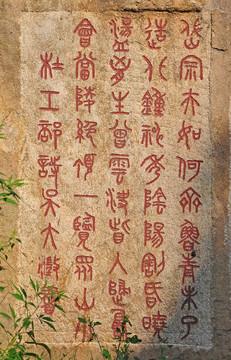 岱宗夫如何齊魯青未了
造化鍾神秀陰陽割昏曉
盪胸生曾雲決眥入歸鳥
會當陵絕頂一覽眾山小
杜工部詩吳大澂書